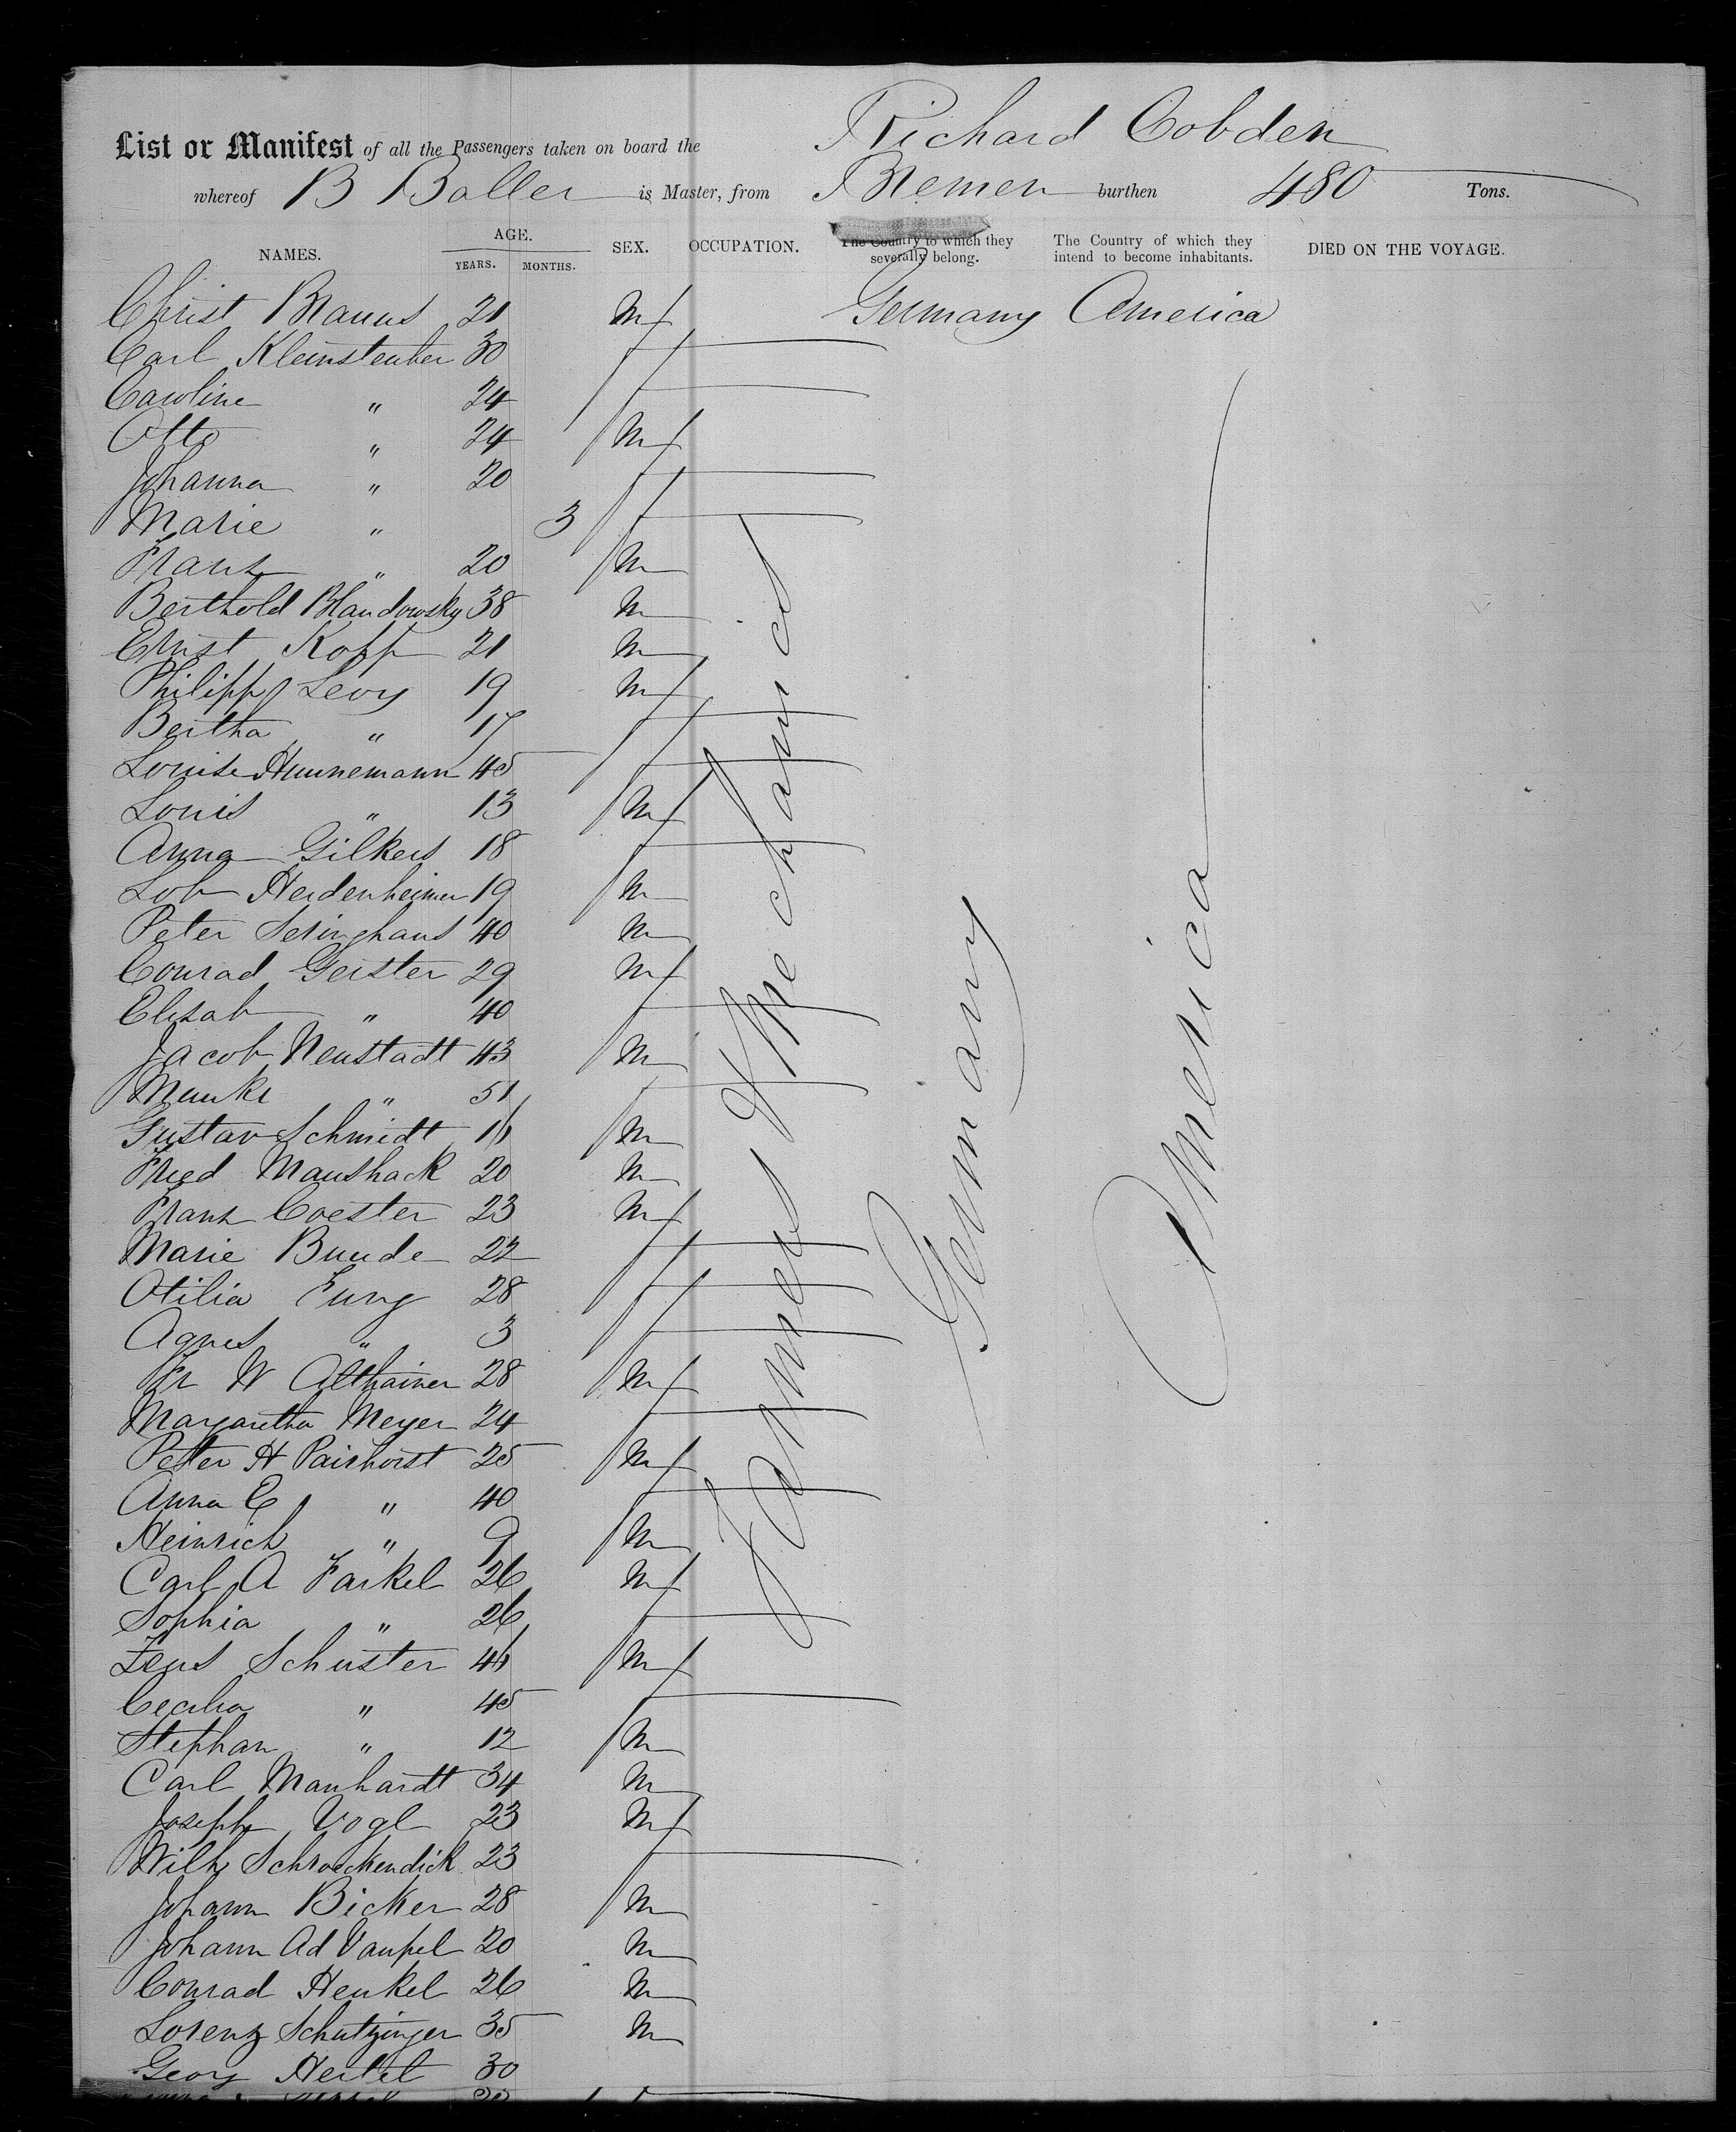 List or Manifest of all the Passengers taken on board the Richard Cobden
whereof B Boller is Master, from Bremen burthen 480 Tons.
NAMES. AGE. YEARS. MONTHS. SEX. OCCUPATION. The Country to which they severally belong. The Country of which they intend to become inhabitants. DIED ON THE VOYAGE.
Christ Brauns 21 M Germany America
Carl Kleinsteuber 30 f
Caroline " 24 f
Otto " 24 M
Johanna " 20 f
Marie " 3 f
Franz " 20 M
Berthold Blandowsky 38 M
Ernst Kopp 21 M
Philipp Levy 19 M
Bertha " 17 f
Louise Hunnemann 45 f
Louis " 13 M
Anna Gilkers 18 f
Lob Heidenheimer 19 M
Peter Seringhaus 40 M
Conrad Geister 29 M
Elisab " 40 f
Jacob Neustadt 43 M
" 51 f
Gustav Schmidt 16 M
Fried Maushack 20 M
Franz Coester 23 M
Marie Bunde 22 f
Otilia Jung 28 f
Agnes " 3 f
Fr W Althainer 28 M
Margaretha Meyer 24 f
Peter H Pairhorst 25 M
Anna C " 40 f
Heinrich " 9 M
Carl A Farkel 26 M
Sophia " 26 f
Schuster 46 M
Cecilia " 45 f
Stephan " 12 M
Carl Manhardt 34 M
Joseph Vogl 23 M
Wilh Schroeckendick 23 f
Johann Bicker 28 M
Johann Ad Vaupel 20 M
Conrad Henkel 26 M
Lorenz Schutzinger 35 M
Georg Hertel 30
Farmers & Mechanics
Germany
America